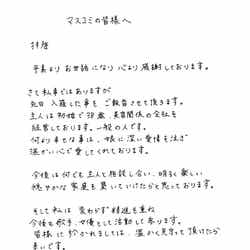 マスコミの皆様へ
拝啓
平素より お世話になり 心より感謝しております。
さて私事ではありますが
先日 入籍した事を ご報告させて頂きます。
主人は 38歳、美容関係の会社を
経営しております。一般の人です。
何より幸せな事は、娘に深い愛情を注ぎ
温かい心で愛してくれております。
今後は何でも主人と相談し合い、明るく楽しい
穏やかな家庭を築いていけたらと思っております。
そして私は 変わらず精進を重ね
今後も歌手、女優として活動して参ります。
皆様に於かれましては、温かく見守って頂けたら
幸いです。